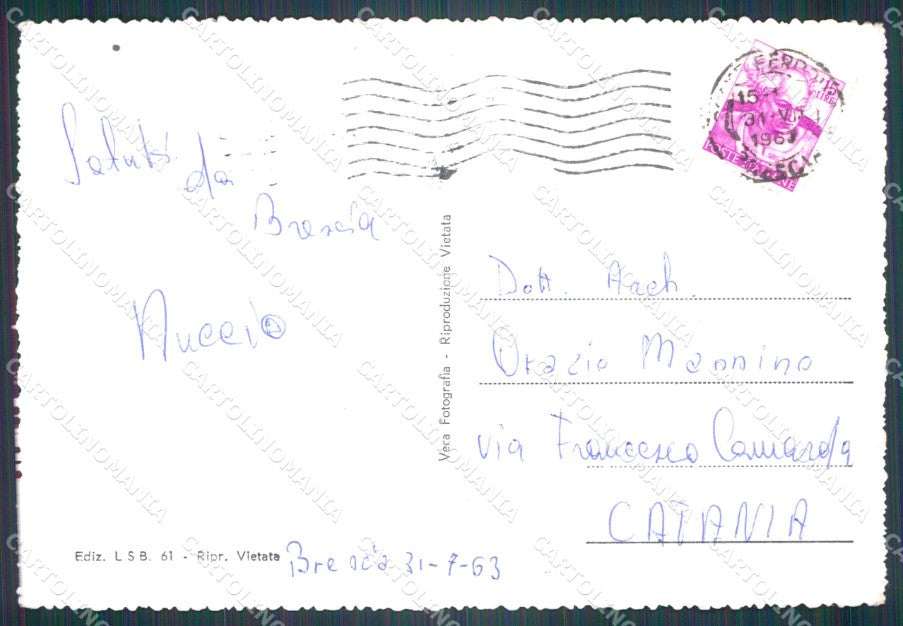 Saluti
da
Brescia
Nuccio
Ediz. L S B. 61 - Ripr. Vietata
Brescia 31-7-63
Vera Fotografia - Riproduzione Vietata
15-
31-VII
196
Dott. Arch.
Orazio Mannino
via Francesco Camarda
CATANIA
CARTOLINOMANIA